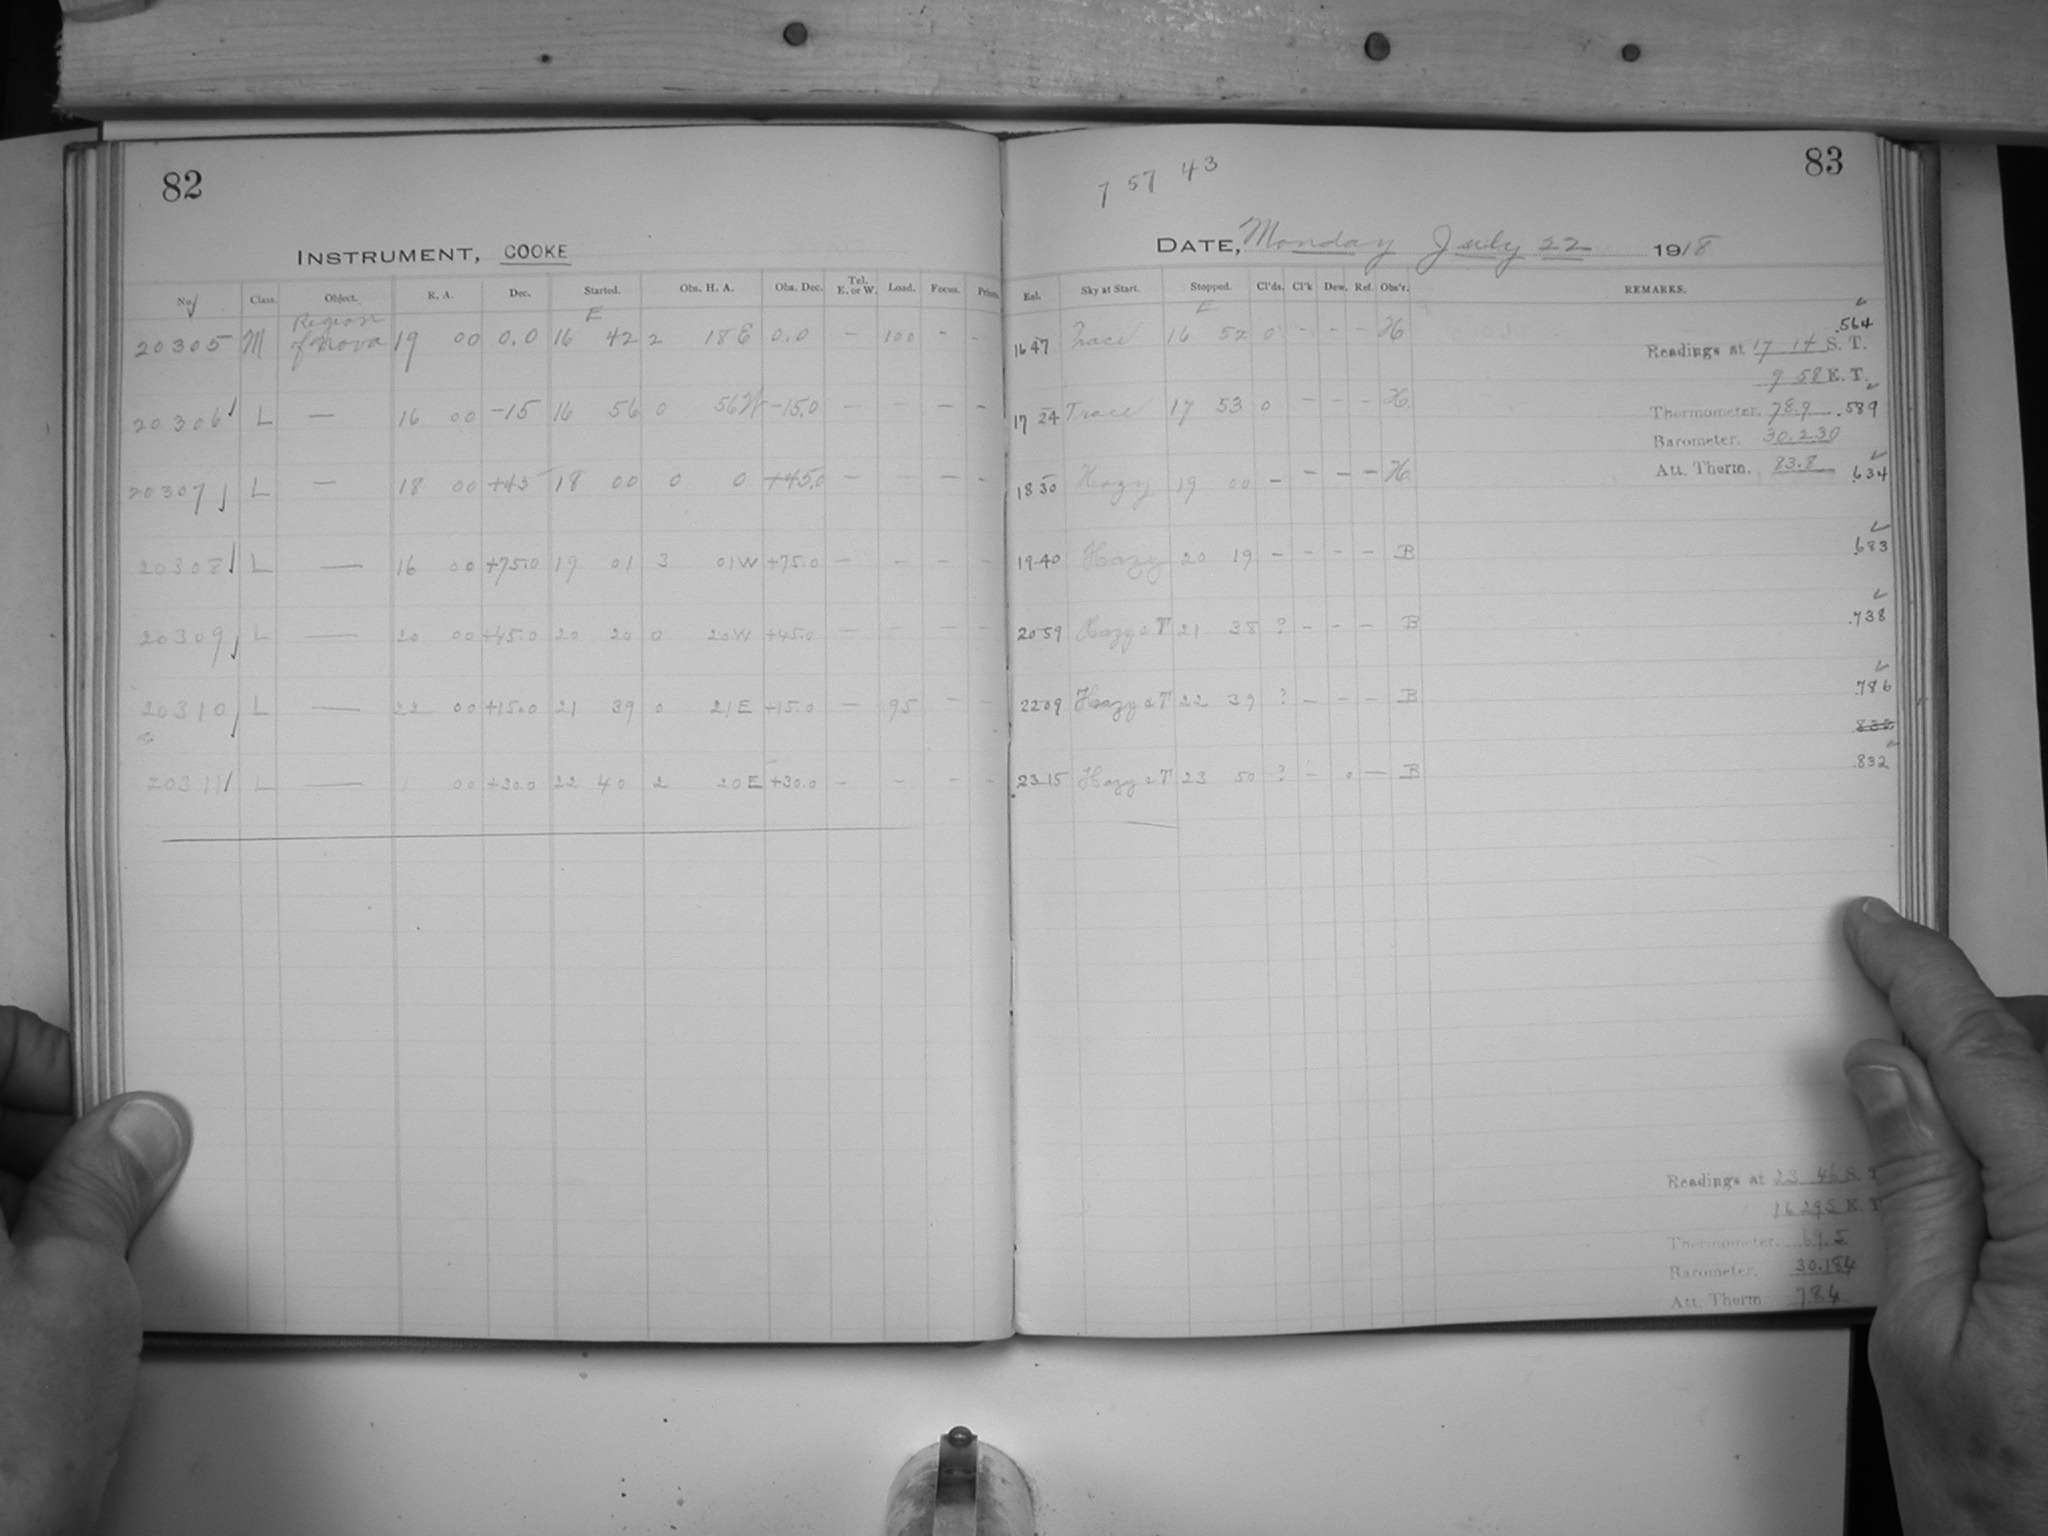 82
INSTRUMENT, COOKE
No. Class. Object. R. A. Dec. Started. Obs. H. A. Obs. Dec. Tel. E. or W. Load. Focus. Prism.
E
20305 M Region of Nova 19 00 0.0 16 42 2 18 E 0.0 - 100 - -
20306 L — 16 00 -15 16 56 0 56W -15.0 - - - -
20307 L — 18 00 +45 18 00 0 0 +45.0 - - - -
20308 L — 16 00 +75.0 19 01 3 01W +75.0 - - - -
20309 L — 20 00 +45.0 20 20 0 20W +45.0 - - - -
20310 L — 22 00 +15.0 21 39 0 21E +15.0 - 95 - -
20311 L — 1 00 +30.0 22 40 2 20E +30.0 - - - -
83
7 57 43
DATE, Monday July 22 1918
Eol. Sky at Start. Stopped. Cl'ds. Cl'k Dew. Ref. Obs'r. REMARKS.
E
16 47 Trace 16 52 0 - - - H .564
Readings at 17 14 S. T.
9 58 K. T.
17 24 Trace 17 53 0 - - - H. .589
Thermometer. 78.9
Barometer. 30.230
Att. Therm. 83.8
18 30 Hazy 19 00 - - - - H. .634
19 40 Hazy 20 19 - - - - B .683
20 59 Hazy & T 21 38 ? - - - B .738
22 09 Hazy & T 22 39 ? - - - B .786
.832
23 15 Hazy & T 23 50 ? - 0 — B .832
Readings at 23 46 S. T
16 295 K. T
Thermometer. 69.5
Barometer. 30.184
Att. Therm. 78.4